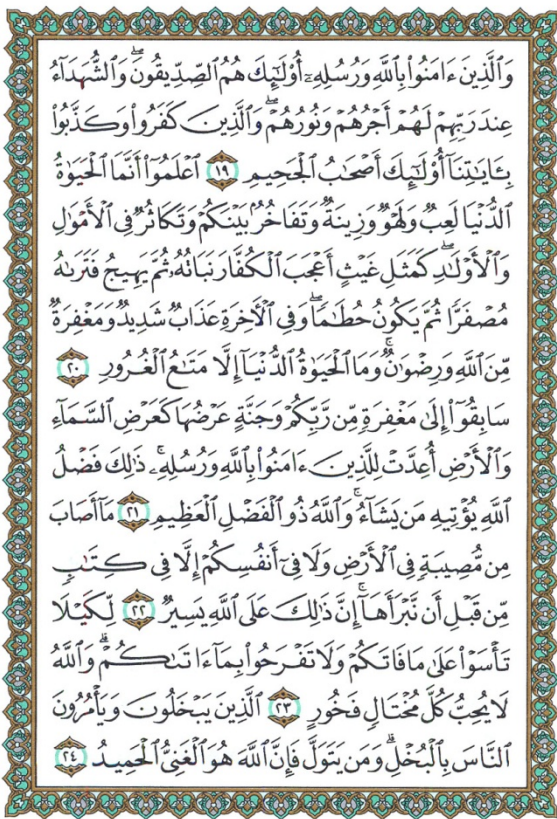 وَٱلَّذِينَ ءَامَنُوا۟ بِٱللَّهِ وَرُسُلِهِۦٓ أُو۟لَٰٓئِكَ هُمُ ٱلصِّدِّيقُونَ ۖ وَٱلشُّهَدَآءُ
عِندَ رَبِّهِمْ لَهُمْ أَجْرُهُمْ وَنُورُهُمْ ۖ وَٱلَّذِينَ كَفَرُوا۟ وَكَذَّبُوا۟
بِـَٔايَٰتِنَآ أُو۟لَٰٓئِكَ أَصْحَٰبُ ٱلْجَحِيمِ ١٩ ٱعْلَمُوٓا۟ أَنَّمَا ٱلْحَيَوٰةُ
ٱلدُّنْيَا لَعِبٌ وَلَهْوٌ وَزِينَةٌ وَتَفَاخُرٌۢ بَيْنَكُمْ وَتَكَاثُرٌ فِى ٱلْأَمْوَٰلِ
وَٱلْأَوْلَٰدِ ۖ كَمَثَلِ غَيْثٍ أَعْجَبَ ٱلْكُفَّارَ نَبَاتُهُۥ ثُمَّ يَهِيجُ فَتَرَىٰهُ
مُصْفَرًّا ثُمَّ يَكُونُ حُطَٰمًا ۖ وَفِى ٱلْـَٔاخِرَةِ عَذَابٌ شَدِيدٌ وَمَغْفِرَةٌ
مِّنَ ٱللَّهِ وَرِضْوَٰنٌ ۚ وَمَا ٱلْحَيَوٰةُ ٱلدُّنْيَآ إِلَّا مَتَٰعُ ٱلْغُرُورِ ٢٠
سَابِقُوٓا۟ إِلَىٰ مَغْفِرَةٍ مِّن رَّبِّكُمْ وَجَنَّةٍ عَرْضُهَا كَعَرْضِ ٱلسَّمَآءِ
وَٱلْأَرْضِ أُعِدَّتْ لِلَّذِينَ ءَامَنُوا۟ بِٱللَّهِ وَرُسُلِهِۦ ۚ ذَٰلِكَ فَضْلُ
ٱللَّهِ يُؤْتِيهِ مَن يَشَآءُ ۚ وَٱللَّهُ ذُو ٱلْفَضْلِ ٱلْعَظِيمِ ٢١ مَآ أَصَابَ
مِن مُّصِيبَةٍ فِى ٱلْأَرْضِ وَلَا فِىٓ أَنفُسِكُمْ إِلَّا فِى كِتَٰبٍ
مِّن قَبْلِ أَن نَّبْرَأَهَآ ۚ إِنَّ ذَٰلِكَ عَلَى ٱللَّهِ يَسِيرٌ ٢٢ لِّكَيْلَا
تَأْسَوْا۟ عَلَىٰ مَا فَاتَكُمْ وَلَا تَفْرَحُوا۟ بِمَآ ءَاتَىٰكُمْ ۗ وَٱللَّهُ
لَا يُحِبُّ كُلَّ مُخْتَالٍ فَخُورٍ ٢٣ ٱلَّذِينَ يَبْخَلُونَ وَيَأْمُرُونَ
ٱلنَّاسَ بِٱلْبُخْلِ ۗ وَمَن يَتَوَلَّ فَإِنَّ ٱللَّهَ هُوَ ٱلْغَنِىُّ ٱلْحَمِيدُ ٢٤